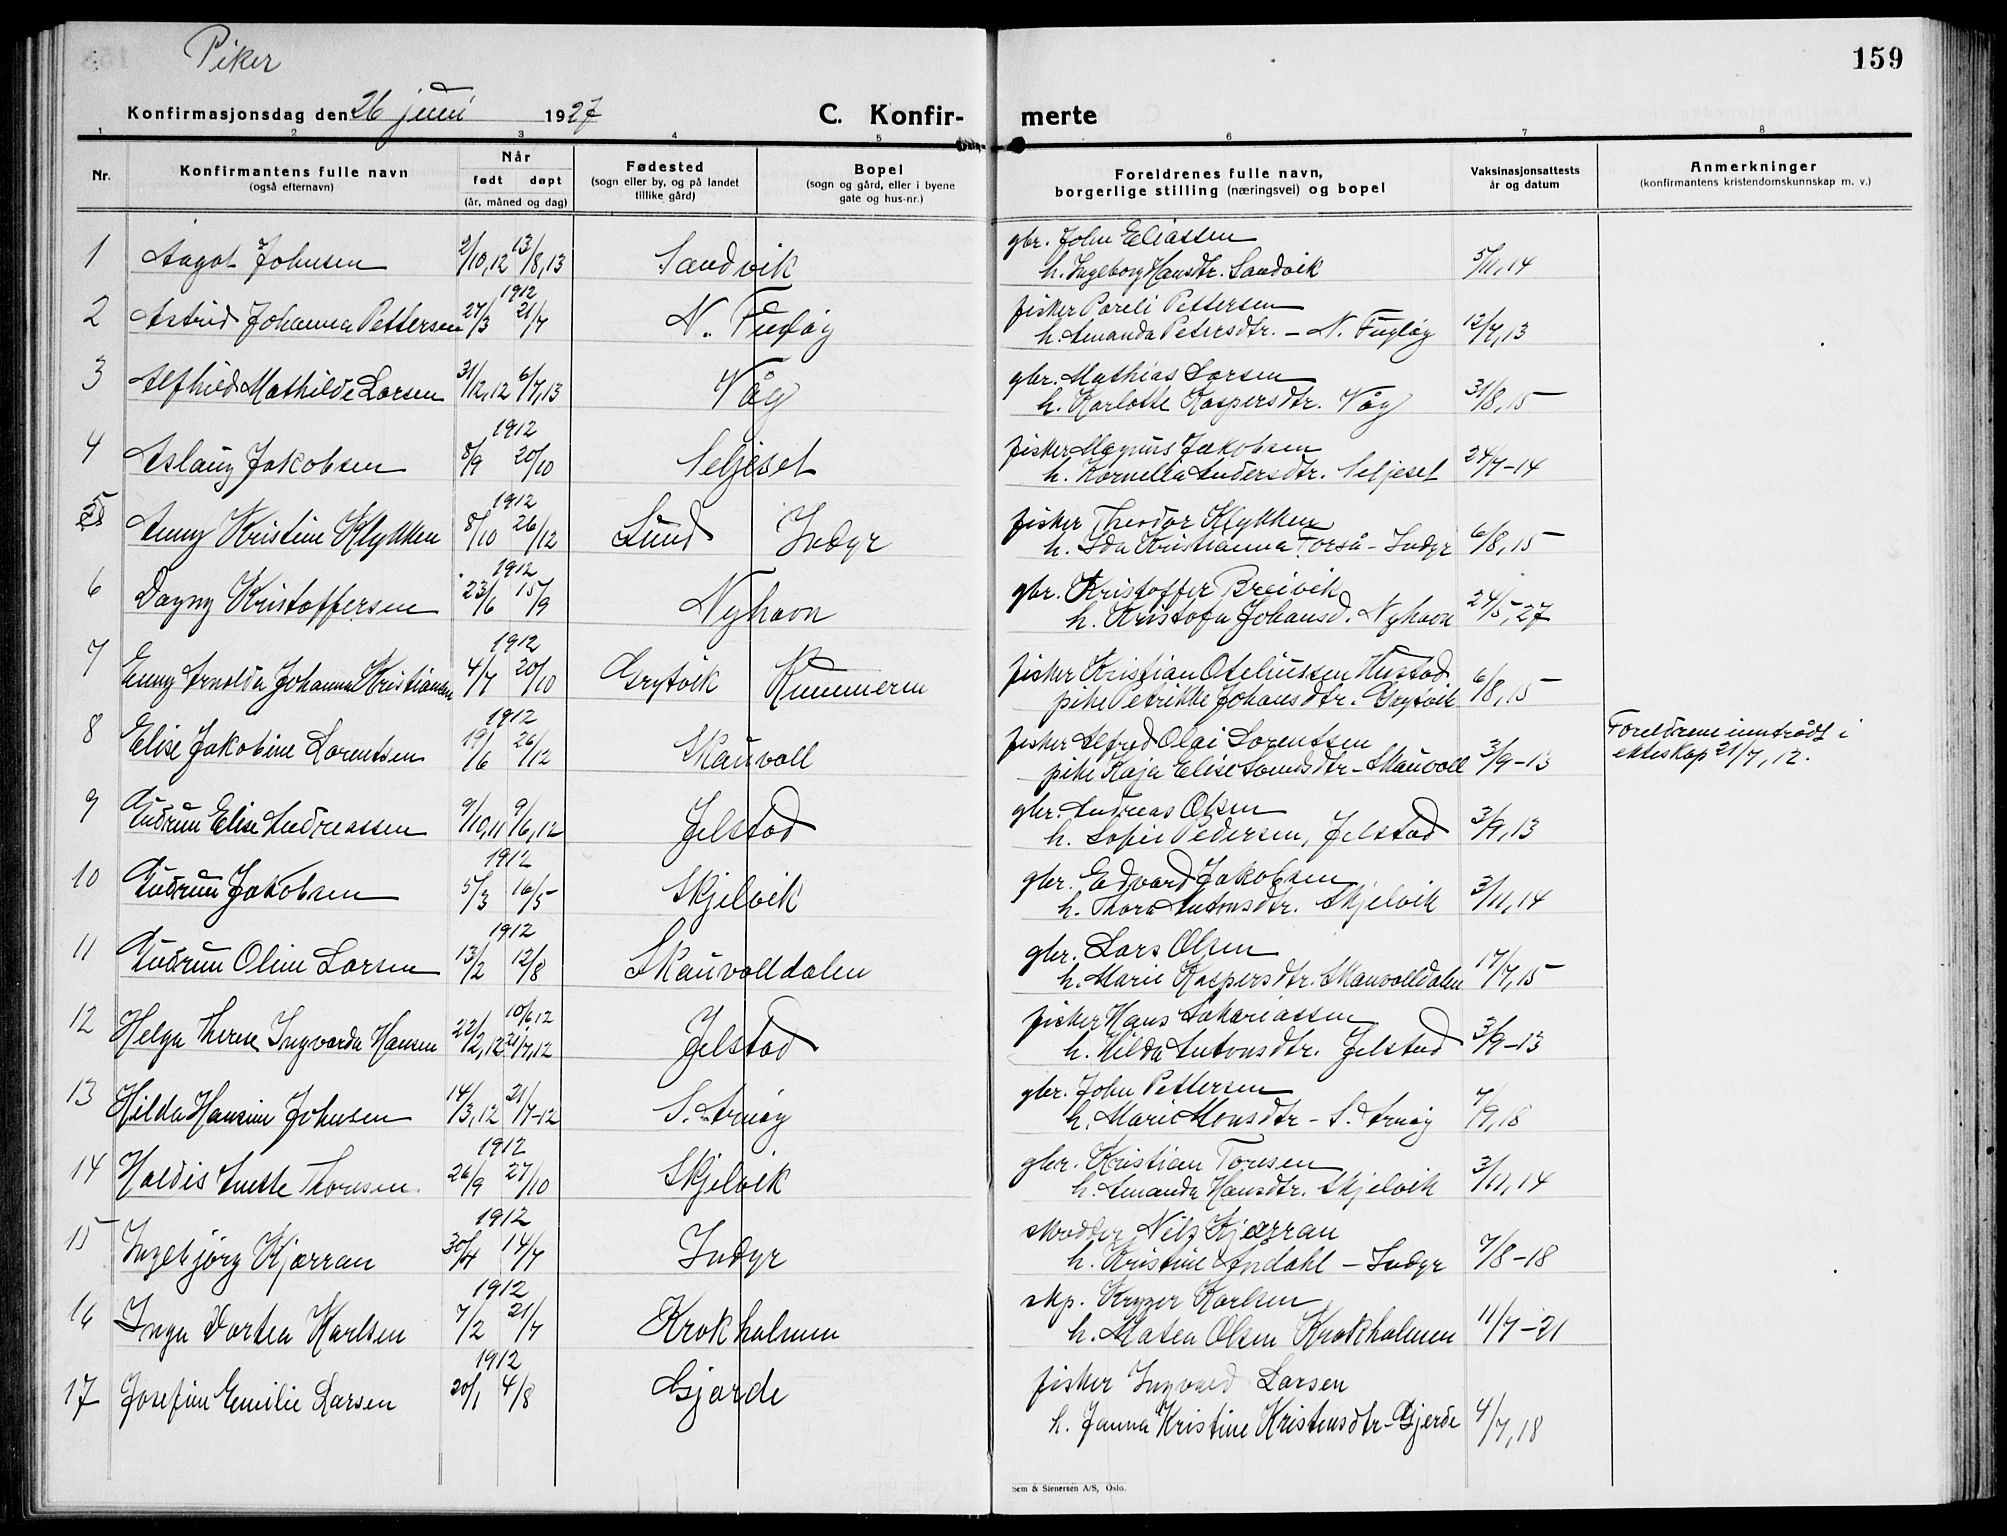 Piker
159
Konfirmasjonsdag den 26 juni 1927
C. Konfir- merte
1 2 3 4 5 6 7 8
Nr. Konfirmantens fulle navn (også efternavn) Når født døpt (år, måned og dag) Fødested (sogn eller by, og på landet tillike gård) Bopel (sogn og gård, eller i byene gate og hus-nr.) Foreldrenes fulle navn, borgerlige stilling (næringsvei) og bopel Vaksinasjonsattests år og datum Anmerkninger (konfirmantens kristendomskunnskap m. v.)
1 Aagot Johnsen 2/10,12 13/8,13 Sandvik gbr. John Eliassen
h. Ingeborg Hansdtr. Sandvik 5/11,14
2 Astrid Johanna Pettersen 1912 27/3 21/7 N. Fugløy fisker Pareli Pettersen
h. Amanda Petersdtr. - N. Fugløy 12/7,13
3 Alfhild Mathilde Larsen 31/12,12 6/7,13 Våg gbr. Mathias Larsen
h. Karlotte Kaspersdtr. Våg 31/8,15
4 Aslaug Jakobsen 1912 8/9 20/10 Seljeset fisker Magnus Jakobsen
h. Kornelia Andersdtr. Seljeset 24/7-14
5 Anny Kristine Klykken 1912 8/10 26/12 Lund Indyr fisker Theodor Klykken
h. Ida Kristianna Forså - Indyr 6/8,15
6 Dagny Kristoffersen 1912 23/6 15/9 Nyhavn gbr. Kristoffer Breivik
h. Kristofa Johansd. Nyhavn 24/5,27
7 Enny Arnolda Johanna Kristiansen 1912 4/7 20/10 Grytvik Kummeren fisker Kristian Oteliussen Hustad
pike Petrikke Johansdtr. Grytvik 6/8,15
8 Elise Jakobine Lorentsen 1912 19/6 26/12 Skauvoll fisker Alfred Olai Lorentsen
pike Kaja Elise Lorndsdtr - Skauvoll 3/9-13 Foreldrene inntrådt i
ekteskap 21/7,12.
9 Gudrun Elise Andreassen 9/10,11 9/6,12 Jelstad gbr. Andreas Olsen
h. Sofie Pedersen, Jelstad 3/9,13
10 Gudrun Jakobsen 1912 5/3 16/5 Skjelvik gbr. Edvard Jakobsen
h. Thora Antonsdtr. Skjelvik 3/11,14
11 Gudrun Oline Larsen 1912 13/2 12/8 Skauvolldalen gbr. Lars Olsen
h. Marie Kaspersdtr. Skauvolldalen 17/7,15
12 Helga Therese Ingvarda Hansen 22/2,12 10/6,12 21/7,12 Jelstad fisker Hans Sakariassen
h. Hilda Antonsdtr. Jelstad 3/9-13
13 Hilda Hansine Johnsen 14/3,12 21/7-12 S. Arnøy gbr. John Pettersen
h. Marie Monsdtr - S. Arnøy 7/9,18
14 Haldis Anette Thoresen 1912 26/9 27/10 Skjelvik gbr. Kristian Toresen
h. Amanda Hansdtr. Skjelvik 3/11,14
15 Ingebjørg Kjærran 1912 30/4 14/7 Indyr skredder Nils Kjærran
h. Kristine Andahl - Indyr 7/8-18
16 Inga Dortea Karlsen 1912 7/2 21/7 Krokholmen skp. Kryger Karlsen
h. Matea Olsen Krokholmen 11/7-21
17 Josefine Emilie Larsen 1912 20/1 4/8 Gjærde fisker Ingvald Larsen
h. Janna Kristine Kristensdtr - Gjerde 4/7,18
Sem & Stenersen A/S, Oslo.